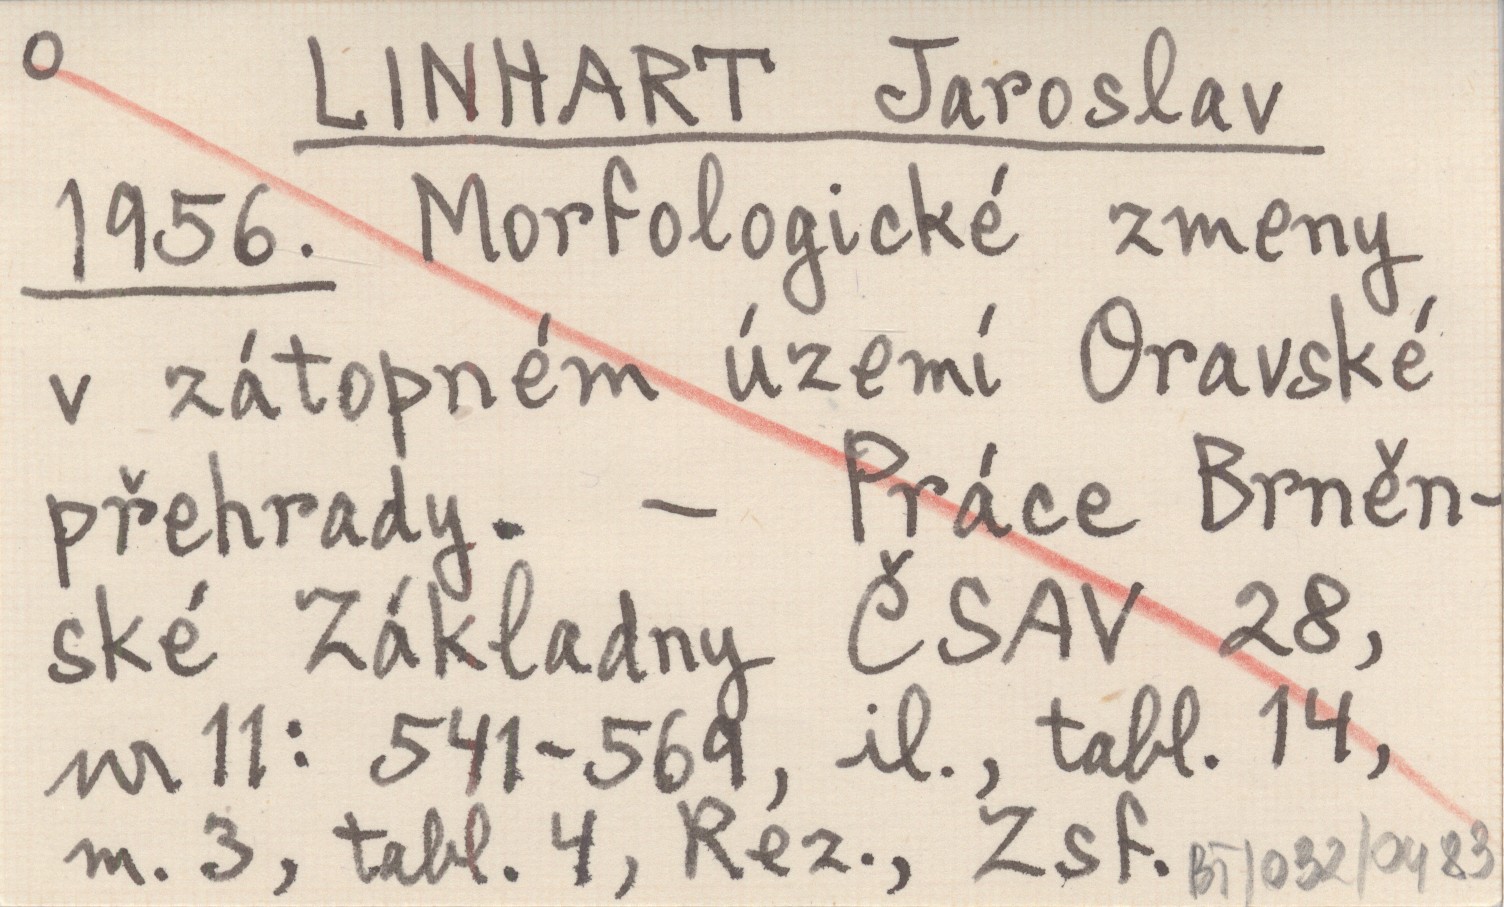 O
LINHART Jaroslav
1956. Morfologické zmeny
v zátopném území Oravské
přehrady. – Práce Brněn-
ské Základny ČSAV 28,
nr 11: 541-569, il., tabl. 14,
m. 3, tabl. 4, Rez., Zsf.
BT/032/0483